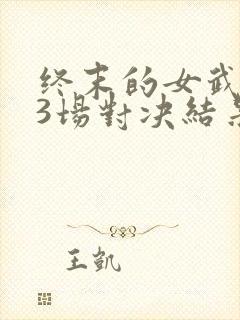 终末的女武
3場對决結果
王凯